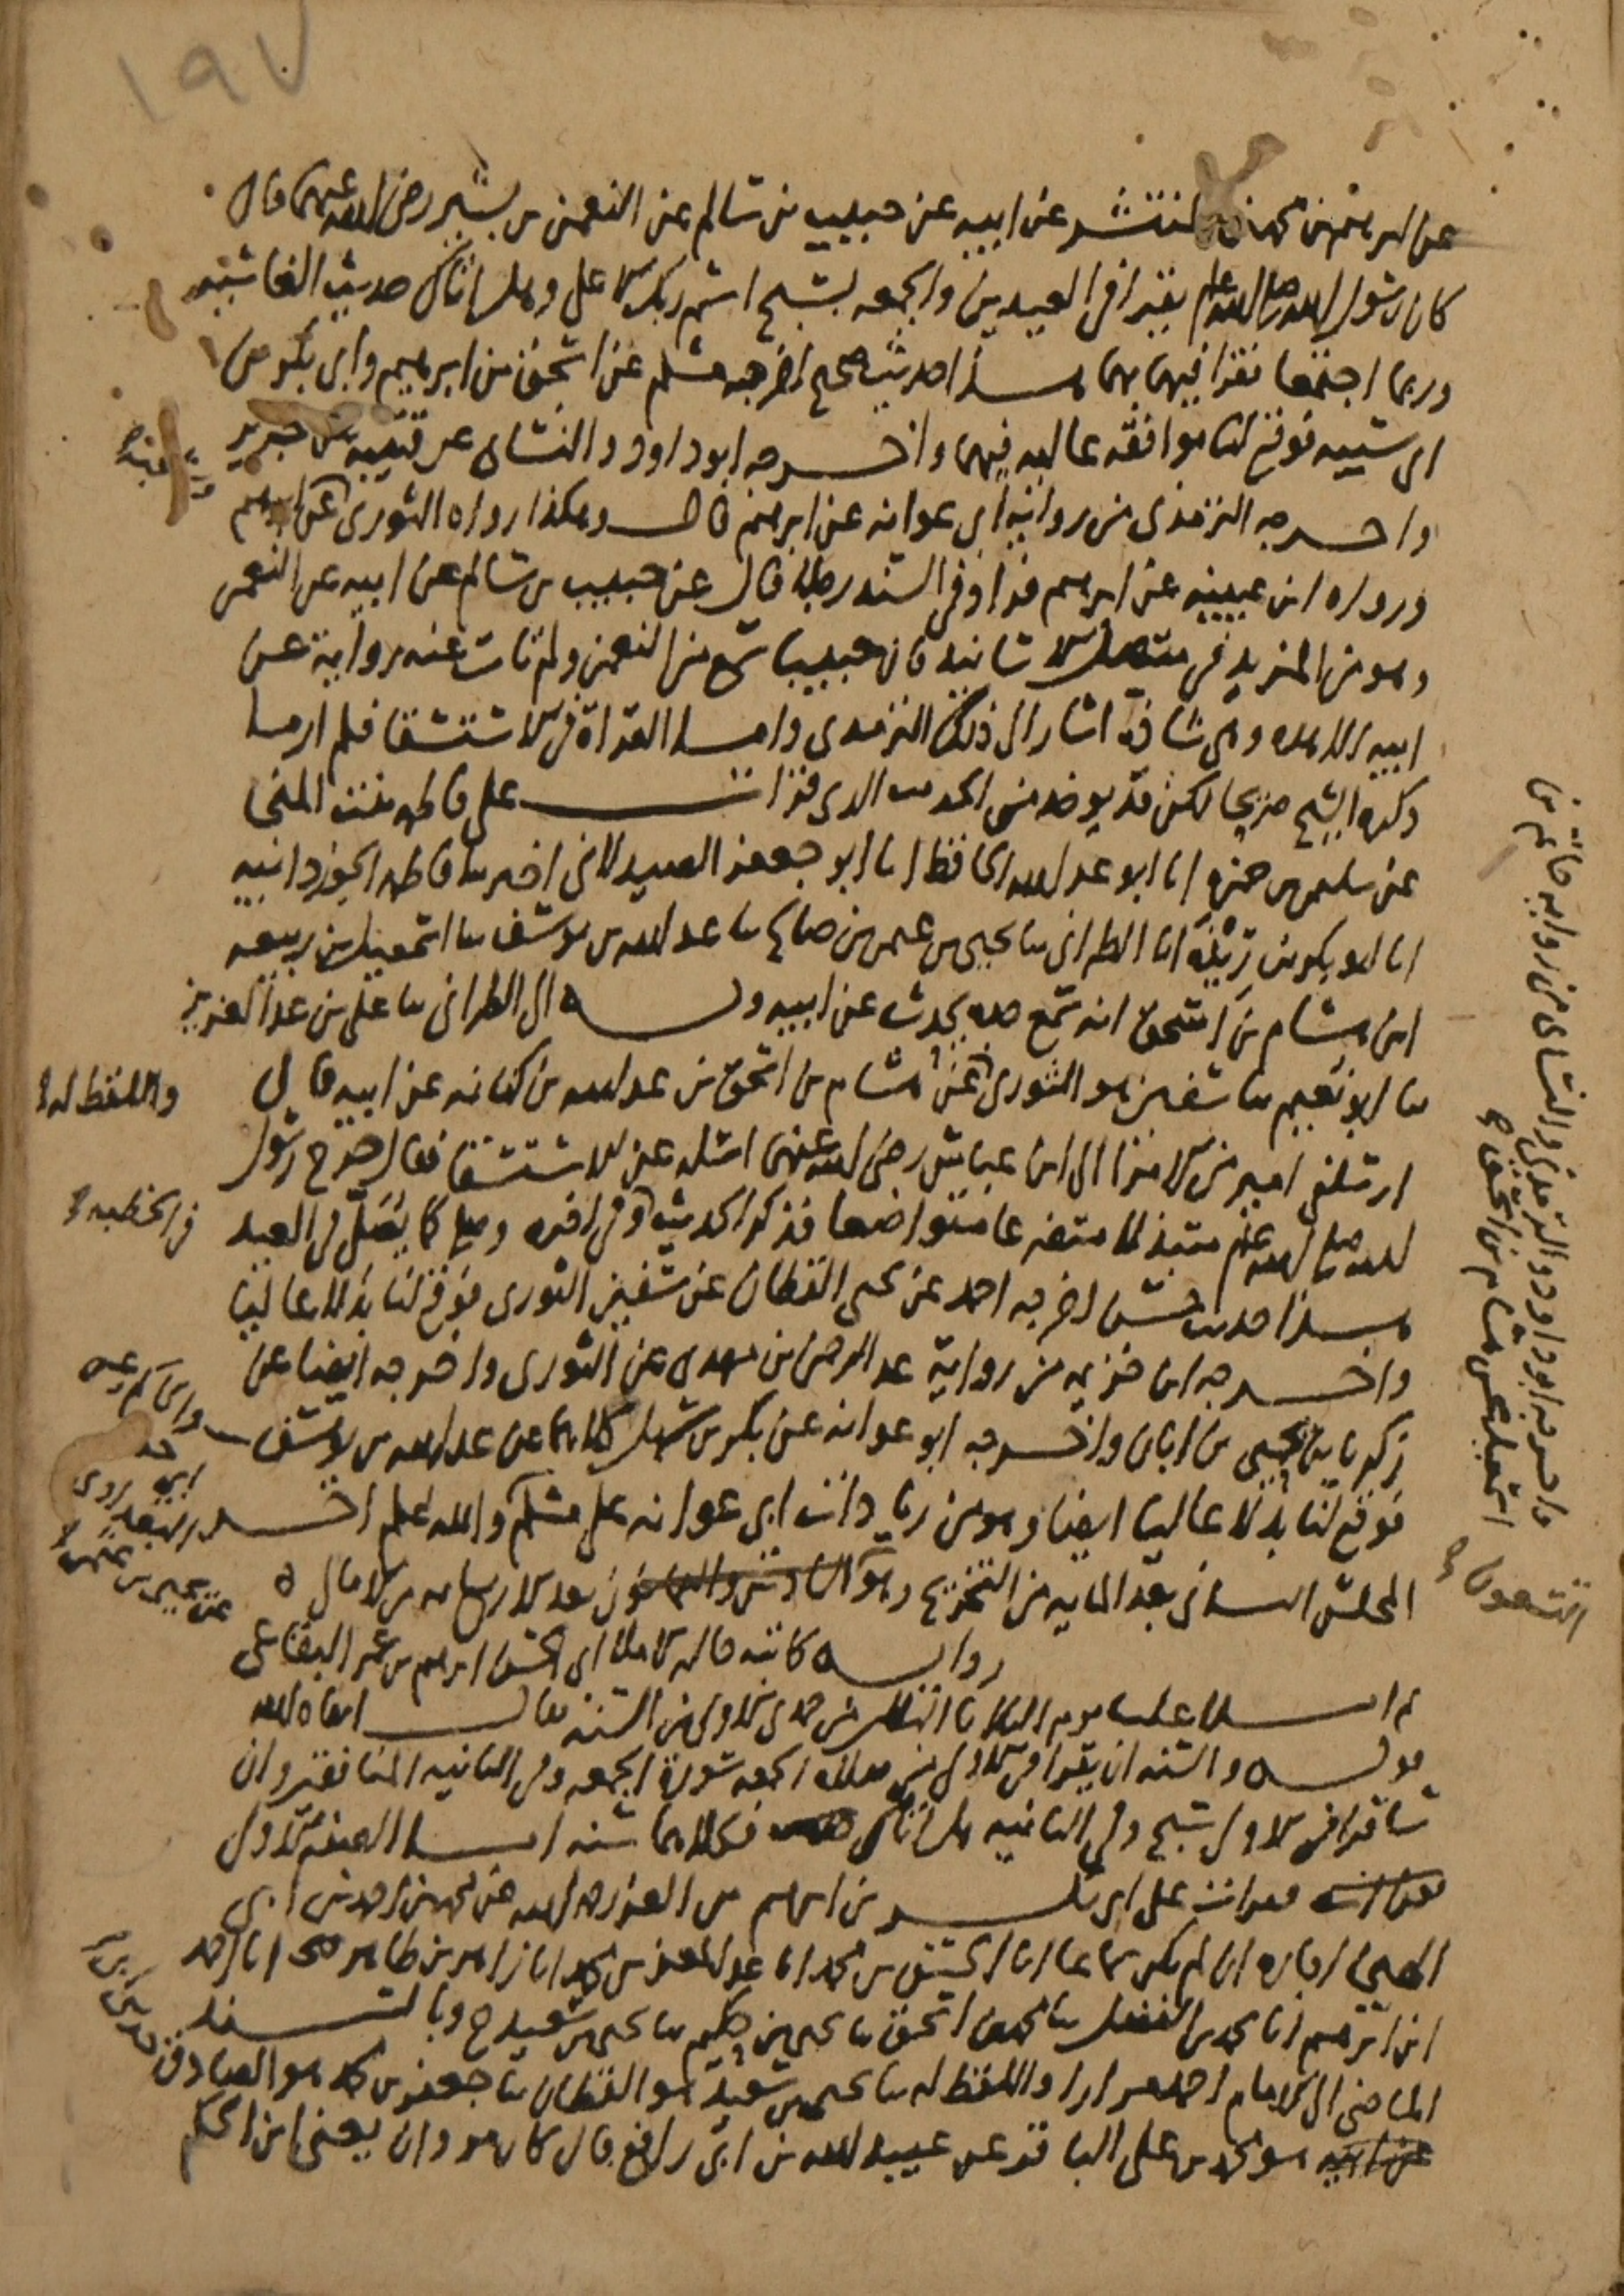 ١٩٧
عن ابرهيم بن محمد بن المنتشر عن ابيه عن حبيب بن سالم عن النعمن بن بشير رضى الله عنهما قال
كان رسول الله صلى الله عليه وسلم يقرا فى العيدين والجمعه بسبح اسم ربك الاعلى وهل اتاك حديث الغاشيه
وربما اجتمعا فقرا فيهما بهما هذا حديث صحيح اخرجه مسلم عن اسحق بن ابرهيم وابى بكر بن
ابى شيبه فوقع لنا موافقه عاليه فيهما واخرجه ابو داود والنسائى عن قتيبه عن جرير
واخرجه الترمذى من روايه ابى عوانه عن ابرهيم قال وهكذا رواه الثورى عن ابرهيم
ورواه ابن عيينه عن ابرهيم فزاد فى السند رجلا قال عن حبيب بن سالم عن ابيه عن النعمن
وهو من المزيد فى متصل الاسانيد فان حبيبا سمع من النعمن ولم تات عنه رواية عن
ابيه الا هذه وهى شاذه اشار الى ذلك الترمذى واما القراة فى الاستسقا فلم ار ما
ذكره الشيخ صريحا لكن قد يوخذ من الحديث الذى قرات على فاطمه بنت المنجا
عن سليمن بن حمزه انا ابو عبد الله الحافظ انا ابو جعفر الصيدلانى اخبرتنا فاطمه الجوزدانيه
انا ابو بكر بن ريذه انا الطبرانى ثنا يحيى بن عثمن بن صالح ثنا عبد الله بن يوسف ثنا اسمعيل بن ربيعه
ابن هشام بن اسحق انه سمع جده يحدث عن ابيه وبه الى الطبرانى ثنا على بن عبد العزيز
ثنا ابو نعيم ثنا سفين هو الثورى عن هشام بن اسحق بن عبد الله بن كنانه عن ابيه قال
واللفظ له
ارسلنى امير من الامرا الى ابن عباس رضى الله عنهما اسله عن الاستسقا فقال خرج رسول
الله صلى الله عليه وسلم متبذلا متضرعا متواضعا فذكر الحديث وفى اخره وصلى كما يصلى فى العيد
فى الخطبه
هذا حديث حسن اخرجه احمد عن يحيى القطان عن سفين الثورى فوقع لنا بدلا عاليا
واخرجه ابن خزيمه من رواية عبد الرحمن بن مهدى عن الثورى واخرجه ايضا عن
زكريا بن يحيى بن ابان واخرجه ابو عوانه عن بكر بن سهل كلاهما عن عبد الله بن يوسف
فوقع لنا بدلا عاليا ايضا وهو من زيادات ابى عوانه على مسلم والله اعلم اخر
المجلس الثانى بعد المايه من التخريج وهو بعد الاربع مايه من الامال ه
روايه كاتبه ابى الحسن ابرهيم بن عمر البقاعى
ثم املا علينا يوم الثلاثا من جمدى الاولى من السنه فقال ابقاه الله
قوله والسنه ان يقرا فى الاولى من صلاة الجمعه سورة الجمعه وفى الثانيه المنافقين وان
شا قرا فى الاولى سبح وفى الثانيه هل اتاك فكلاهما سنه اما الحديث الاول
فقرات على ابى بن ابرهيم بن العز رحمه الله عن محمد بن احمد بن ابى
الهيجا اجازه ان لم يكن سماعا انا الحسن بن محمد انا عبد المعز بن محمد انا زاهر بن طاهر انا احمد
ابن ابرهيم انا محمد بن الفضل ثنا محمد بن اسحق ثنا يحيى بن حكيم ثنا يحيى بن سعيد ح وبالسند
الماضى الى الامام احمد مرارا واللفظ له ثنا يحيى بن سعيد هو القطان ثنا جعفر بن محمد هو الصادق
عن ابيه هو محمد بن على الباقر عن عبيد الله بن ابى رافع قال كان مروان يعنى ابن الحكم
واخرجه ابو داود والترمذى والنسائى من روايه حاتم بن
اسمعيل عن هشام بن اسحق
التسعون